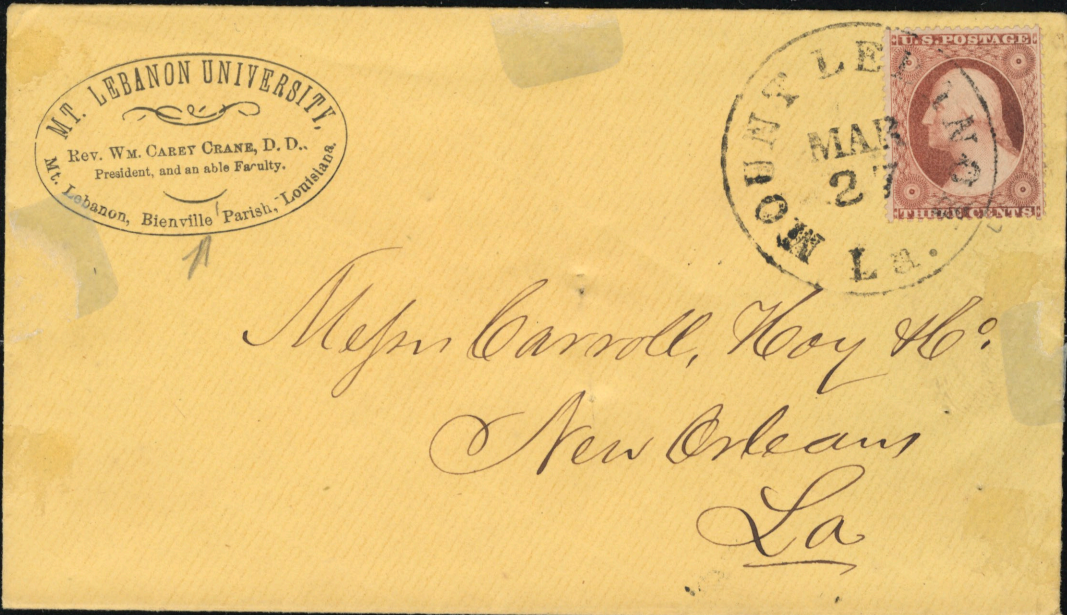 MT. LEBANON UNIVERSITY,
Rev. Wm. Carey Crane, D. D.,
President, and an able Faculty.
Mt. Lebanon, Bienville Parish, Louisiana.
MOUNT LEBANON
MAR
27
La.
U.S. POSTAGE
THREE CENTS
Messrs Carroll, Hoy & Co.
New Orleans
La